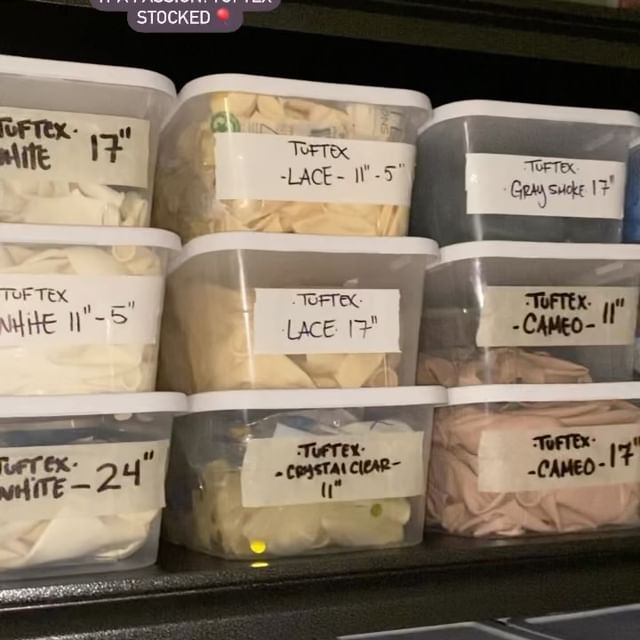 STOCKED
TUFTEX.
WHITE 17"
TUFTEX
-LACE- 11"-5"
·TUFTEX·
·GRAY SMOKE 17"
TUFTEX
WHITE 11"-5"
·TUFTEX·
·LACE 17"
·TUFTEX·
-CAMEO- 11"
TUFTEX·
WHITE-24"
·TUFTEX·
-CRYSTAL CLEAR-
11"
·TUFTEX·
-CAMEO-17"